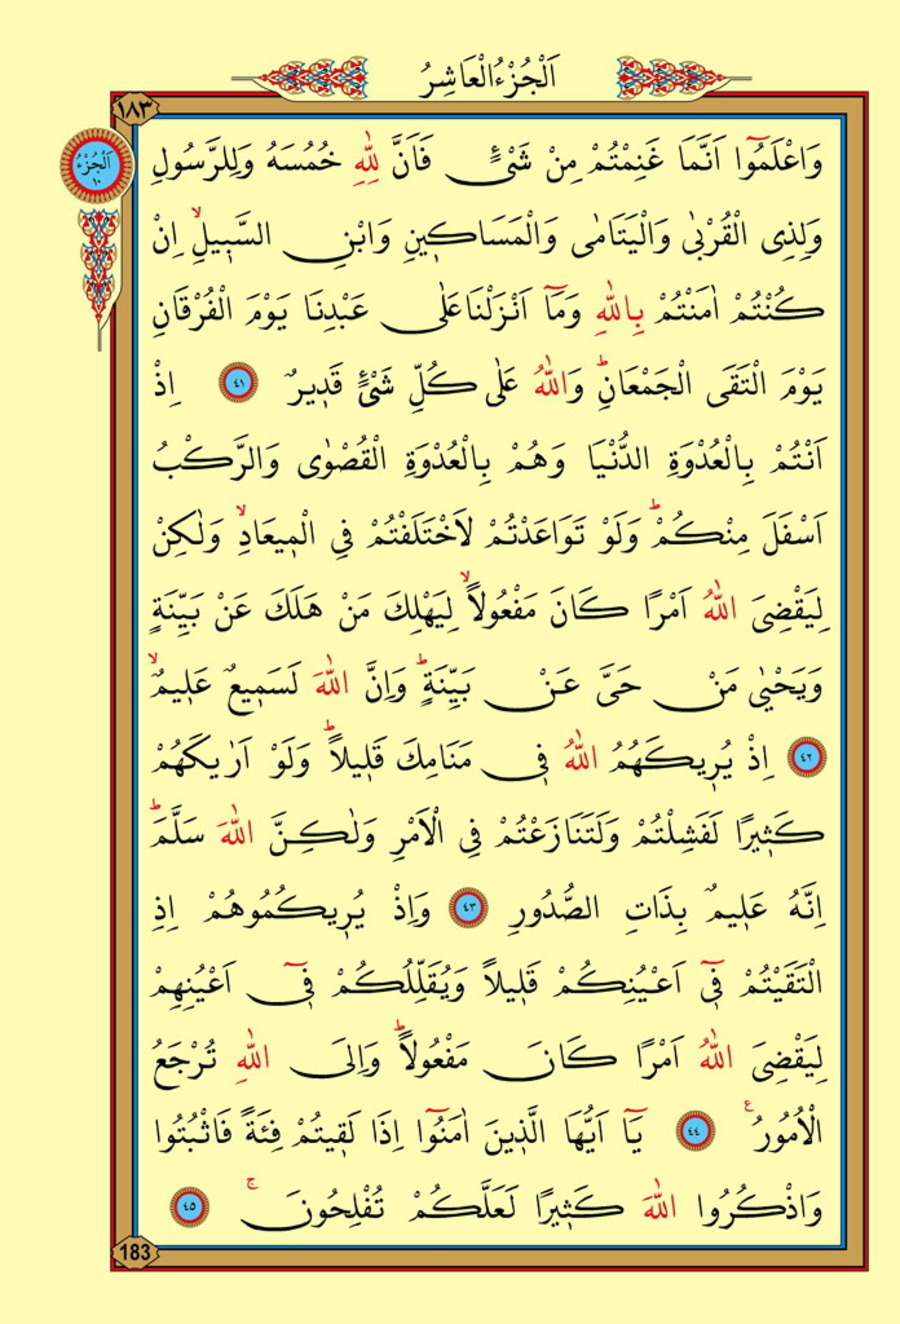 اَلْجُزْءُ الْعَاشِرُ
١٨٣
اَلْجُزْءُ
١٠
وَاعْلَمُٓوا اَنَّمَا غَنِمْتُمْ مِنْ شَيْءٍ فَاَنَّ لِلّٰهِ خُمُسَهُ وَلِلرَّسُولِ
وَلِذِي الْقُرْبٰى وَالْيَتَامٰى وَالْمَسَاك۪ينِ وَابْنِ السَّب۪يلِۙ اِنْ
كُنْتُمْ اٰمَنْتُمْ بِاللّٰهِ وَمَٓا اَنْزَلْنَا عَلٰى عَبْدِنَا يَوْمَ الْفُرْقَانِ
يَوْمَ الْتَقَى الْجَمْعَانِۜ وَاللّٰهُ عَلٰى كُلِّ شَيْءٍ قَد۪يرٌ ٤١ اِذْ
اَنْتُمْ بِالْعُدْوَةِ الدُّنْيَا وَهُمْ بِالْعُدْوَةِ الْقُصْوٰى وَالرَّكْبُ
اَسْفَلَ مِنْكُمْۜ وَلَوْ تَوَاعَدْتُمْ لَاخْتَلَفْتُمْ فِي الْم۪يعَادِۙ وَلٰكِنْ
لِيَقْضِيَ اللّٰهُ اَمْرًا كَانَ مَفْعُولًاۙ لِيَهْلِكَ مَنْ هَلَكَ عَنْ بَيِّنَةٍ
وَيَحْيٰى مَنْ حَيَّ عَنْ بَيِّنَةٍۜ وَاِنَّ اللّٰهَ لَسَم۪يعٌ عَل۪يمٌۙ
٤٢ اِذْ يُر۪يكَهُمُ اللّٰهُ ف۪ي مَنَامِكَ قَل۪يلًاۜ وَلَوْ اَرٰيكَهُمْ
كَث۪يرًا لَفَشِلْتُمْ وَلَتَنَازَعْتُمْ فِي الْاَمْرِ وَلٰكِنَّ اللّٰهَ سَلَّمَۜ
اِنَّهُ عَل۪يمٌ بِذَاتِ الصُّدُورِ ٤٣ وَاِذْ يُر۪يكُمُوهُمْ اِذِ
الْتَقَيْتُمْ ف۪ٓي اَعْيُنِكُمْ قَل۪يلًا وَيُقَلِّلُكُمْ ف۪ٓي اَعْيُنِهِمْ
لِيَقْضِيَ اللّٰهُ اَمْرًا كَانَ مَفْعُولًاۜ وَاِلَى اللّٰهِ تُرْجَعُ
الْاُمُورُ ع ٤٤ يَٓا اَيُّهَا الَّذ۪ينَ اٰمَنُٓوا اِذَا لَق۪يتُمْ فِئَةً فَاثْبُتُوا
وَاذْكُرُوا اللّٰهَ كَث۪يرًا لَعَلَّكُمْ تُفْلِحُونَۚ ٤٥
183